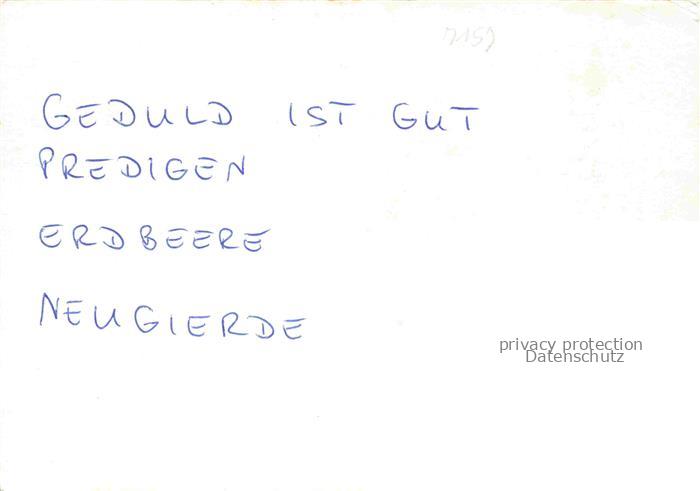 7159
GEDULD IST GUT
PREDIGEN
ERDBEERE
NEUGIERDE
privacy protection
Datenschutz